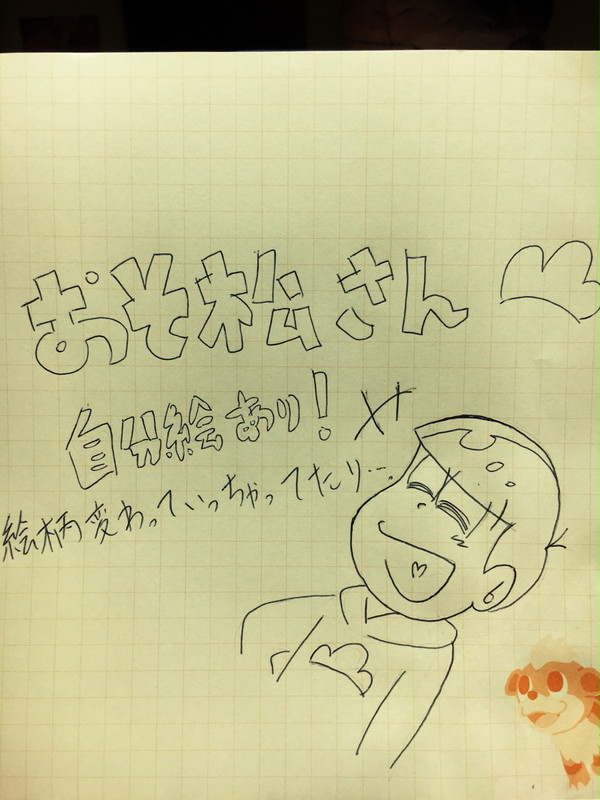 おそ松さん
自分絵あり!
絵柄変わっていっちゃってたり….